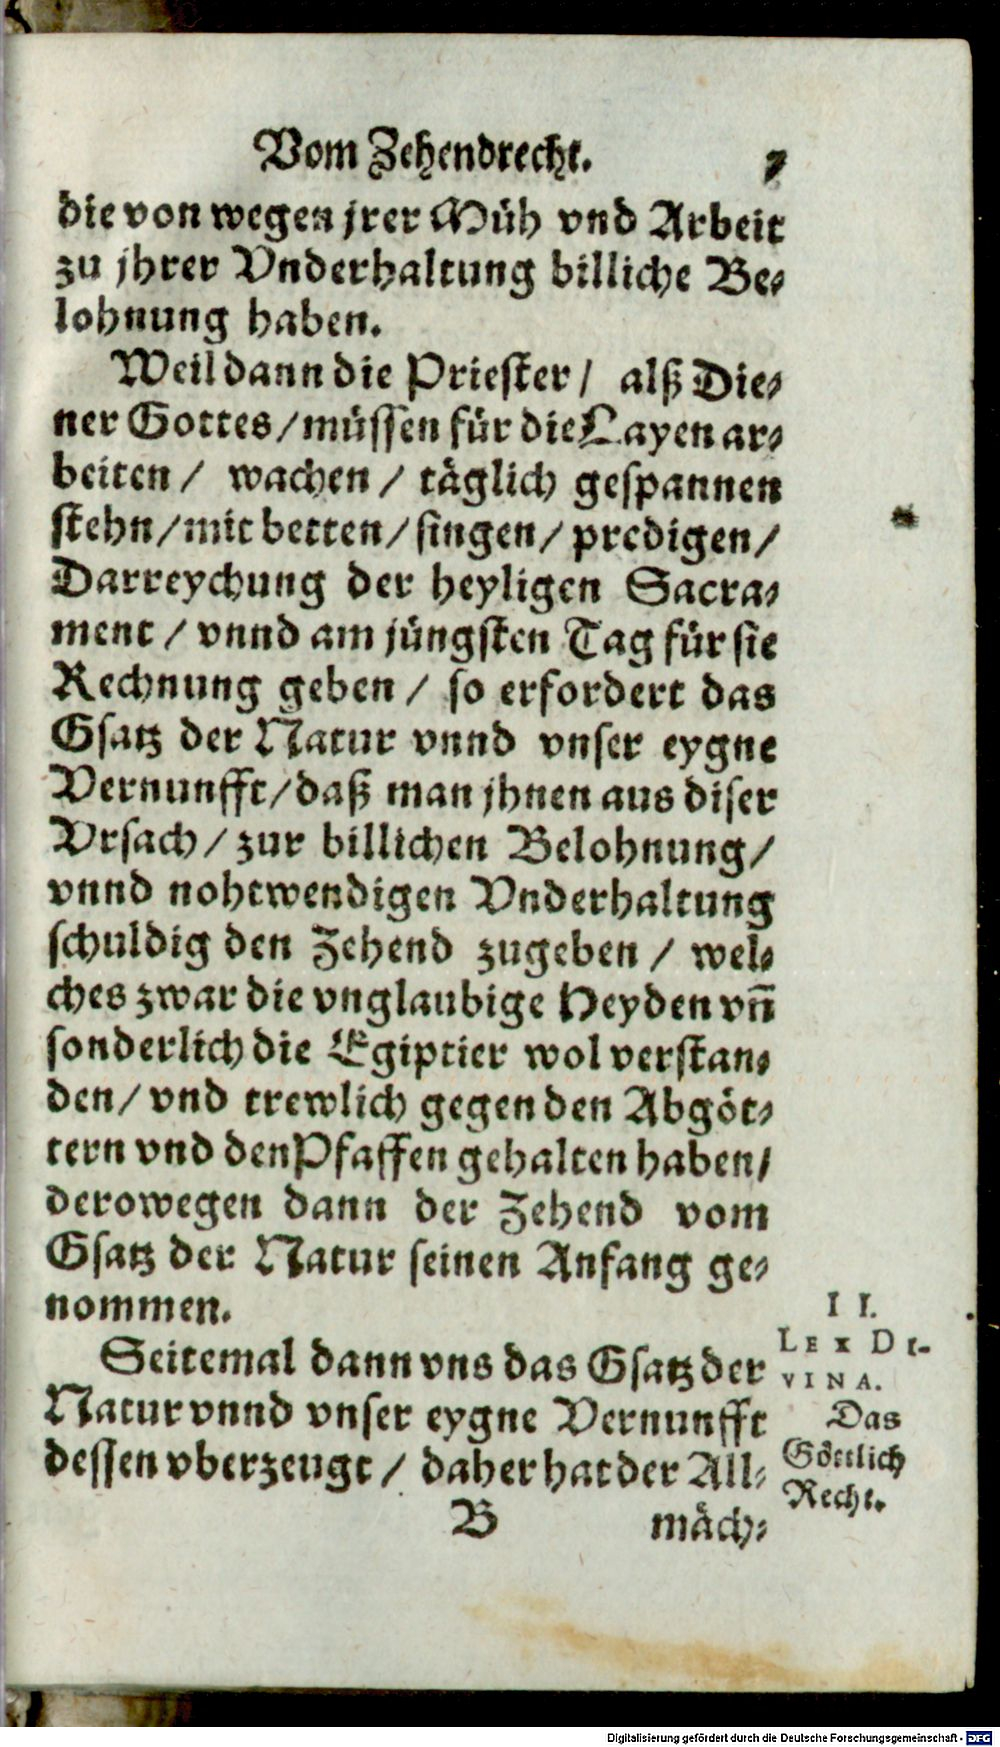 Vom Zehendrecht. 7
die von wegen jrer Müh vnd Arbeit
zu jhrer Vnderhaltung billiche Be-
lohnung haben.
Weil dann die Priester / alß Die-
ner Gottes / müssen für die Layen ar-
beiten / wachen / täglich gespannen
stehn / mit betten / singen / predigen /
Darreychung der heyligen Sacra-
ment / vnnd am jüngsten Tag für sie
Rechnung geben / so erfordert das
Gsatz der Natur vnnd vnser eygne
Vernunfft / daß man jhnen aus diser
Vrsach / zur billichen Belohnung /
vnnd nohtwendigen Vnderhaltung
schuldig den Zehend zugeben / wel-
ches zwar die vnglaubige Heyden vñ
sonderlich die Egiptier wol verstan-
den / vnd trewlich gegen den Abgöt-
tern vnd den Pfaffen gehalten haben /
derowegen dann der Zehend vom
Gsatz der Natur seinen Anfang ge-
nommen.
Seitemal dann vns das Gsatz der
Natur vnnd vnser eygne Vernunfft
dessen vberzeugt / daher hat der All-
B mäch-
II.
LEX DI-
VINA.
Das
Göttlich
Recht.
Digitalisierung gefördert durch die Deutsche Forschungsgemeinschaft - DFG